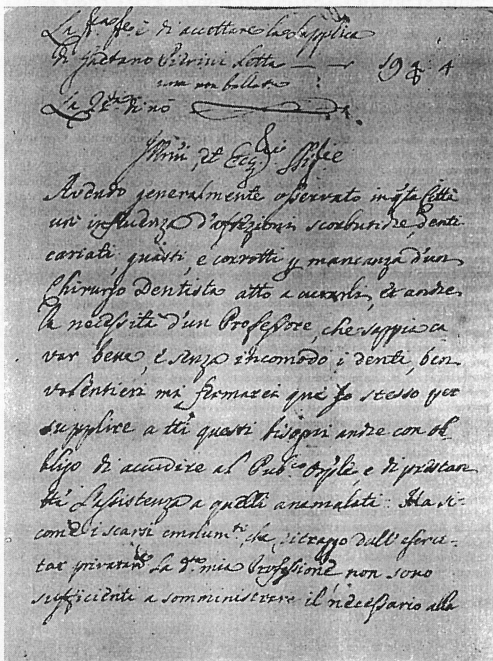 di accettare la supplica
di Gaetano letta — 19 4
non ballott
La
Illmi, et Eccl
Avendo generalmente osservato in qta Città
un' influenza d'affezioni scorbutiche Denti
cariati, guasti, e corrotti p mancanza d'un
Chirurgo Dentista atto a curarli, et anche
la necessità d'un Professore, che sappia ca
var bene, e senza incomodo i denti, ben
volentieri mi fermarei quì Io stesso per
supplire a tti questi bisogni anche con ob
bligo di accudire al Pubco Osple, e di prestar
L'assistenza a quelli ammalati. Ma si
come i scarsi emolumti, che ritraggo dall'eserci
tar privatamte La dta mia Professione non sono
sufficienti a somministrare il necessario alla